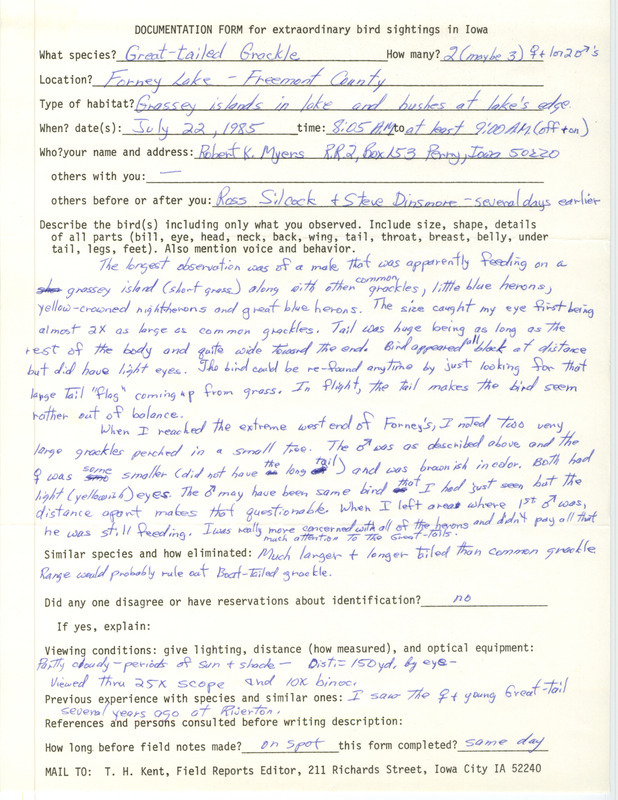 DOCUMENTATION FORM for extraordinary bird sightings in Iowa
What species? Great-tailed Grackle How many? 2 (maybe 3) ♀ + 1 or 2 ♂'s
Location? Forney Lake - Freemont County
Type of habitat? Grassey islands in lake and bushes at lake's edge.
When? date(s): July 22, 1985 time: 8:05 AM to at least 9:00 AM (off + on)
Who? your name and address: Robert K. Myers R.R.2, Box 153 Perry, Iowa 50220
others with you: —
others before or after you: Ross Silcock + Steve Dinsmore - several days earlier
Describe the bird(s) including only what you observed. Include size, shape, details
of all parts (bill, eye, head, neck, back, wing, tail, throat, breast, belly, under
tail, legs, feet). Also mention voice and behavior.
The longest observation was of a male that was apparently feeding on a
grassey island (short grass) along with other common grackles, little blue herons,
yellow-crowned nightherons and great blue herons. The size caught my eye first being
almost 2X as large as common grackles. Tail was huge being as long as the
rest of the body and quite wide toward the end. Bird appeared all black at distance
but did have light eyes. The bird could be re-found anytime by just looking for that
large tail "flag" coming up from grass. In flight, the tail makes the bird seem
rather out of balance.
When I reached the extreme west end of Forney's, I noted two very
large grackles perched in a small tree. The ♂ was as described above and the
♀ was some smaller (did not have the long tail) and was brownish in color. Both had
light (yellowish) eyes. The ♂ may have been same bird that I had just seen but the
distance apart makes that questionable. When I left area where 1st ♂ was,
he was still feeding. I was really more concerned with all of the herons and didn't pay all that
much attention to the Great-tails.
Similar species and how eliminated: Much larger + longer tailed than common grackle
Range would probably rule out Boat-Tailed grackle.
Did any one disagree or have reservations about identification? no
If yes, explain:
Viewing conditions: give lighting, distance (how measured), and optical equipment:
Partly cloudy - periods of sun + shade - Dist. = 150 yd. by eye -
Viewed thru 25X scope and 10X binoc.
Previous experience with species and similar ones: I saw the ♀ + young Great-tail
several years ago at Riverton.
References and persons consulted before writing description:
How long before field notes made? on spot this form completed? same day
MAIL TO: T. H. Kent, Field Reports Editor, 211 Richards Street, Iowa City IA 52240